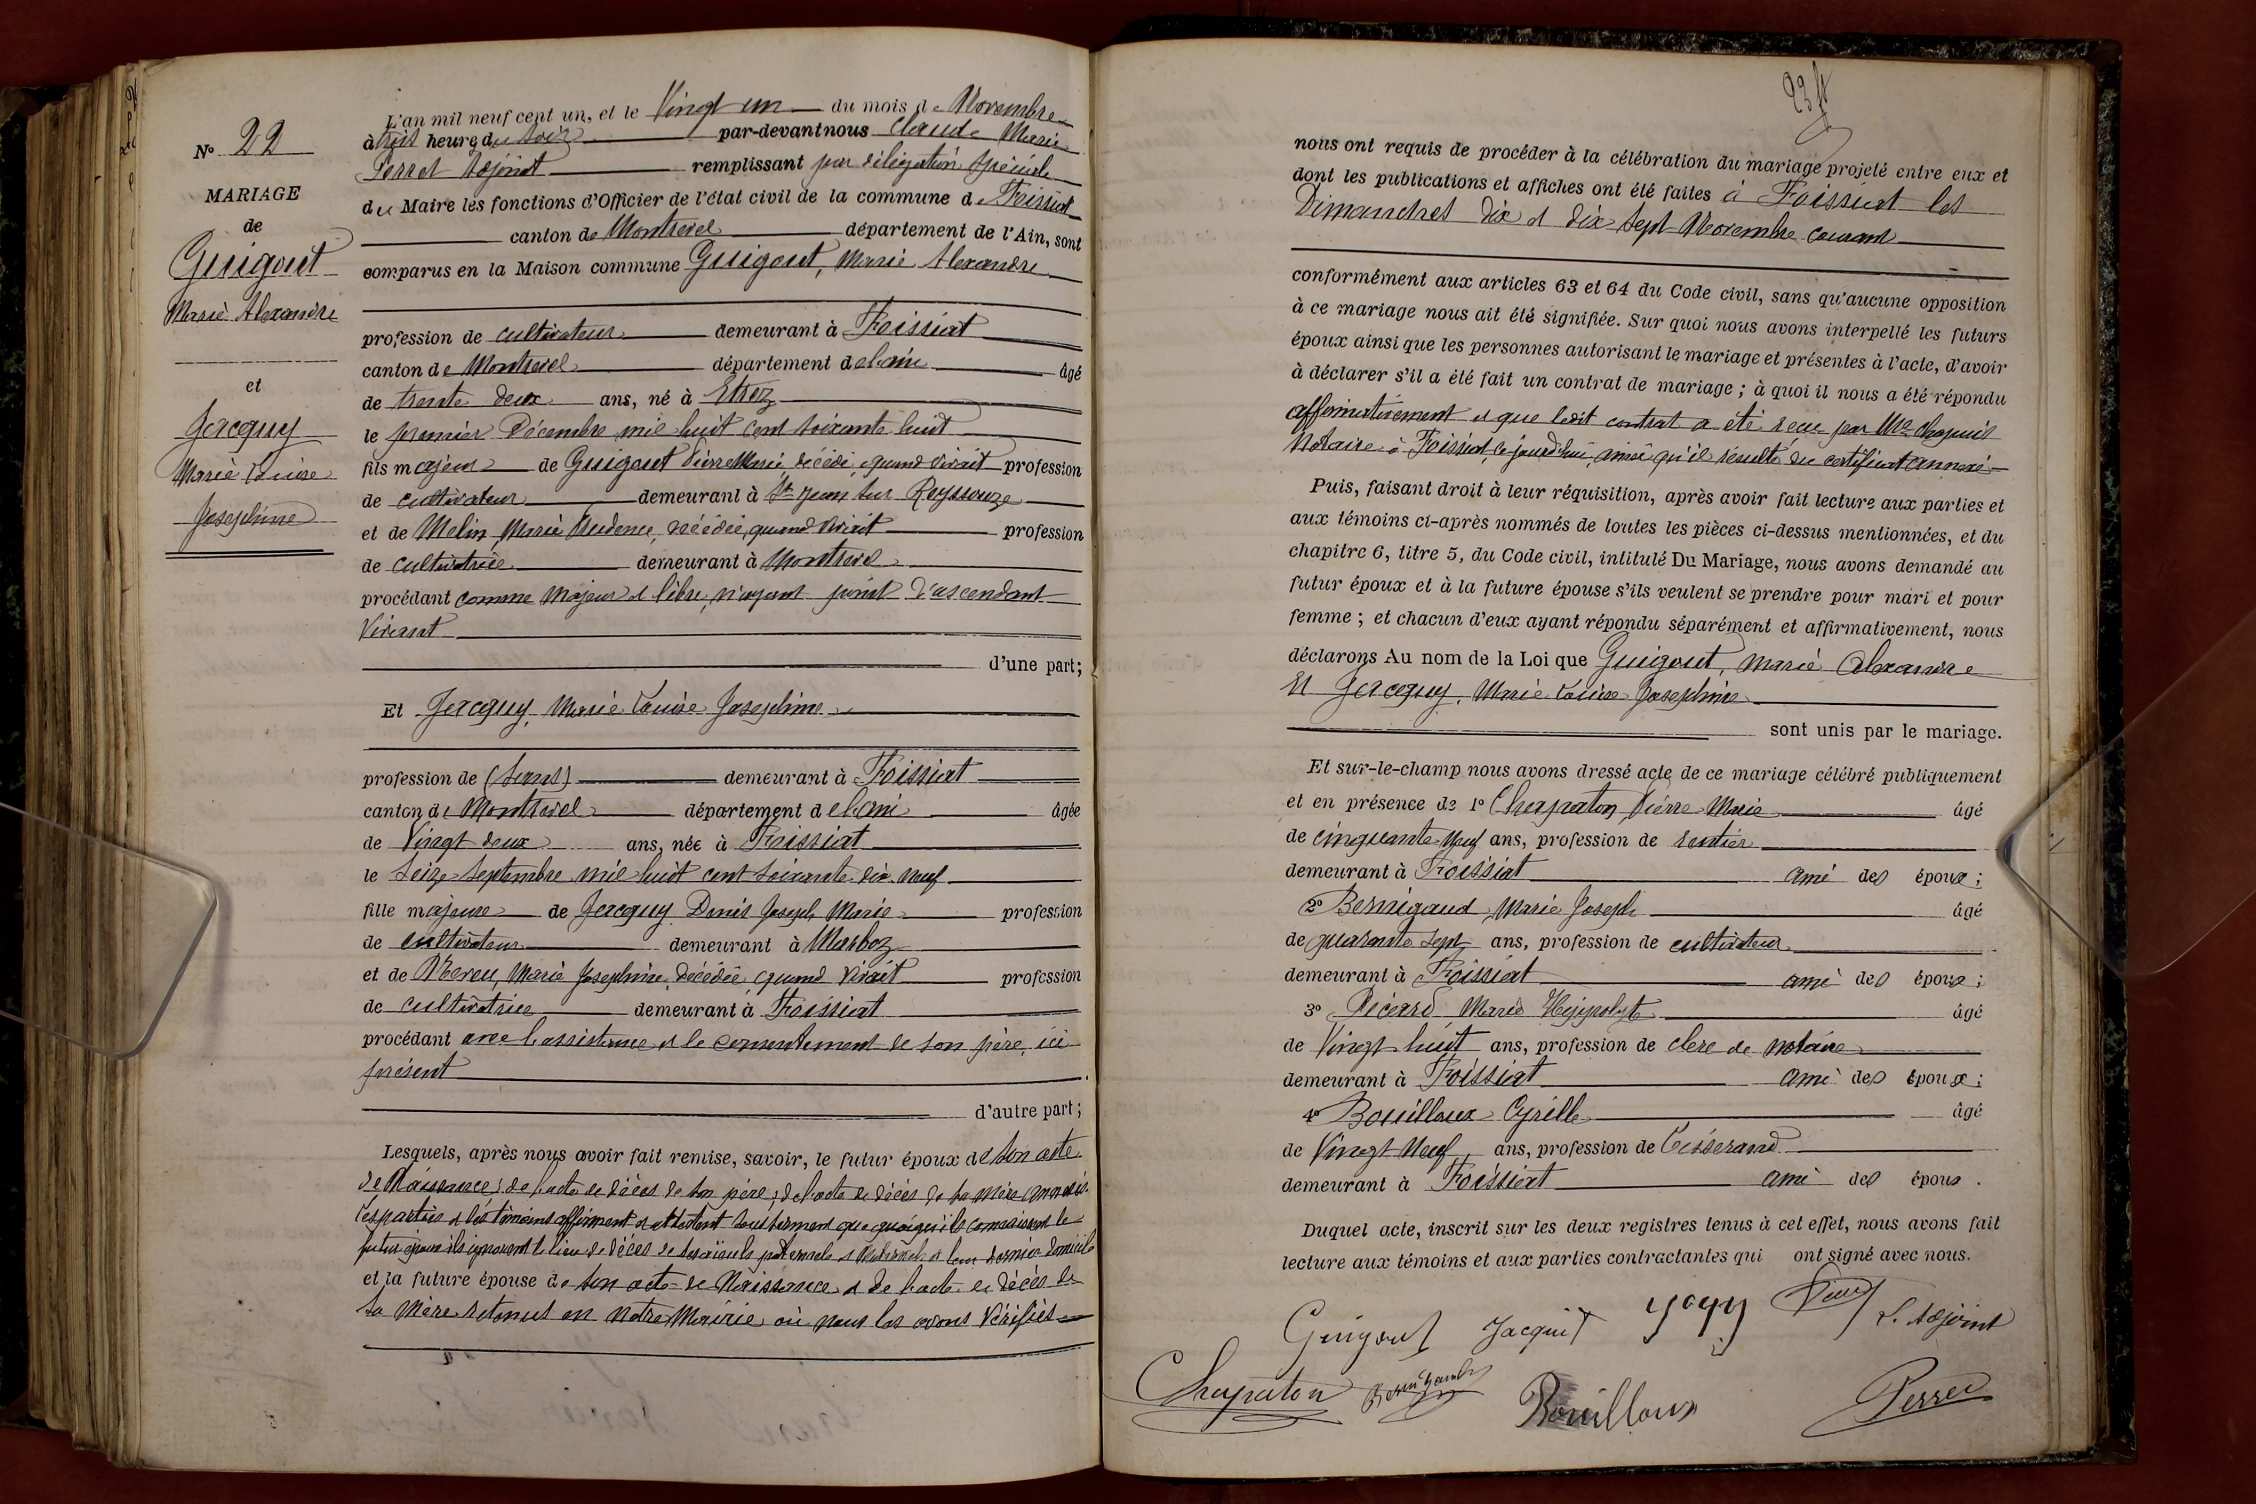 N° 22
MARIAGE
de
Guigout
Marie Alexandre
et
Jacquy
Marie Louise
Josephine
L'an mil neuf cent un, et le Vingt un du mois de Novembre
à trois heures du soir par-devant nous Claude Marie
Perret Adjoint remplissant par délégation spéciale
du Maire les fonctions d'Officier de l'état civil de la commune de Foissiat
canton de Montrevel département de l'Ain, sont
comparus en la Maison commune Guigout, Marie Alexandre
profession de cultivateur demeurant à Foissiat
canton de Montrevel département de l'ain âgé
de trente deux ans, né à Etrez
le premier Décembre mil huit cent soixante huit
fils majeur de Guigout Pierre Marie, décédé, quand vivait profession
de cultivateur demeurant à St Jean sur Reyssouze
et de Melin, Marie Prudence, décédée, quand vivait profession
de cultivatrice demeurant à Montrevel
procédant comme Majeur et libre, n'ayant point d'ascendant
Vivant
d'une part;
Et Jacquy, Marie Louise Josephine
profession de (sans) demeurant à Foissiat
canton de Montrevel département de l'ain âgée
de Vingt deux ans, née à Foissiat
le Seize Septembre mil huit cent soixante dix neuf
fille majeure de Jacquy Denis Joseph Marie profession
de cultivateur demeurant à Marboz
et de Neveu, Marie Josephine, Décédée, quand vivait profession
de cultivatrice demeurant à Foissiat
procédant avec l'assistance et le consentement de son père, ici
présent
d'autre part;
Lesquels, après nous avoir fait remise, savoir, le futur époux de son acte
de Naissance; de l'acte de décès de son père; de l'acte de décès de sa mère
Les parties et les témoins affirment et attestent sous serment que quoiqu'ils connaissent le
futur époux ils ignorent le lieu de décès de ses aïeuls paternels et Maternels et leur dernier domicile
et la future épouse de son acte de Naissance et de l'acte de décès de
sa Mère retenus en notre Mairie où nous les avons Vérifiés
nous ont requis de procéder à la célébration du mariage projeté entre eux et
dont les publications et affiches ont été faites à Foissiat les
Dimanches dix et dix Sept Novembre courant
conformément aux articles 63 et 64 du Code civil, sans qu'aucune opposition
à ce mariage nous ait été signifiée. Sur quoi nous avons interpellé les futurs
époux ainsi que les personnes autorisant le mariage et présentes à l'acte, d'avoir
à déclarer s'il a été fait un contrat de mariage ; à quoi il nous a été répondu
affirmativement et que ledit contrat a été reçu par Me Chapuis
Notaire à Foissiat, ce jourd'hui, ainsi qu'il résulte du certificat annexé
Puis, faisant droit à leur réquisition, après avoir fait lecture aux parties et
aux témoins ci-après nommés de toutes les pièces ci-dessus mentionnées, et du
chapitre 6, titre 5, du Code civil, intitulé Du Mariage, nous avons demandé au
futur époux et à la future épouse s'ils veulent se prendre pour mari et pour
femme ; et chacun d'eux ayant répondu séparément et affirmativement, nous
déclarons Au nom de la Loi que Guigout, Marie Alexandre
Et Jacquy, Marie Louise Josephine
sont unis par le mariage.
Et sur-le-champ nous avons dressé acte de ce mariage célébré publiquement
et en présence de 1° Chapaton Pierre Marie âgé
de cinquante Neuf ans, profession de rentier
demeurant à Foissiat ami des époux ;
2° Bernigaud Marie Joseph âgé
de quarante sept ans, profession de cultivateur
demeurant à Foissiat ami des époux ;
3° Picard Marie Hyppolyte âgé
de Vingt huit ans, profession de clerc de notaire
demeurant à Foissiat ami des époux ;
4° Bouilloux Cyrille âgé
de Vingt Neuf ans, profession de Tisserand
demeurant à Foissiat ami des époux .
Duquel acte, inscrit sur les deux registres tenus à cet effet, nous avons fait
lecture aux témoins et aux parties contractantes qui ont signé avec nous.
Guigout Jacquit L. Adjoint
Chapaton Bouilloux Perret